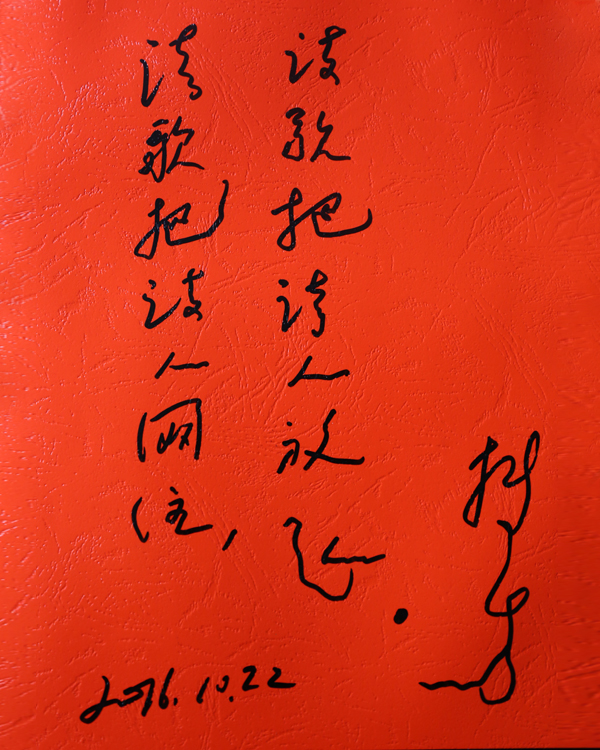 诗歌把诗人网住，
诗歌把诗人放飞.
2016.10.22